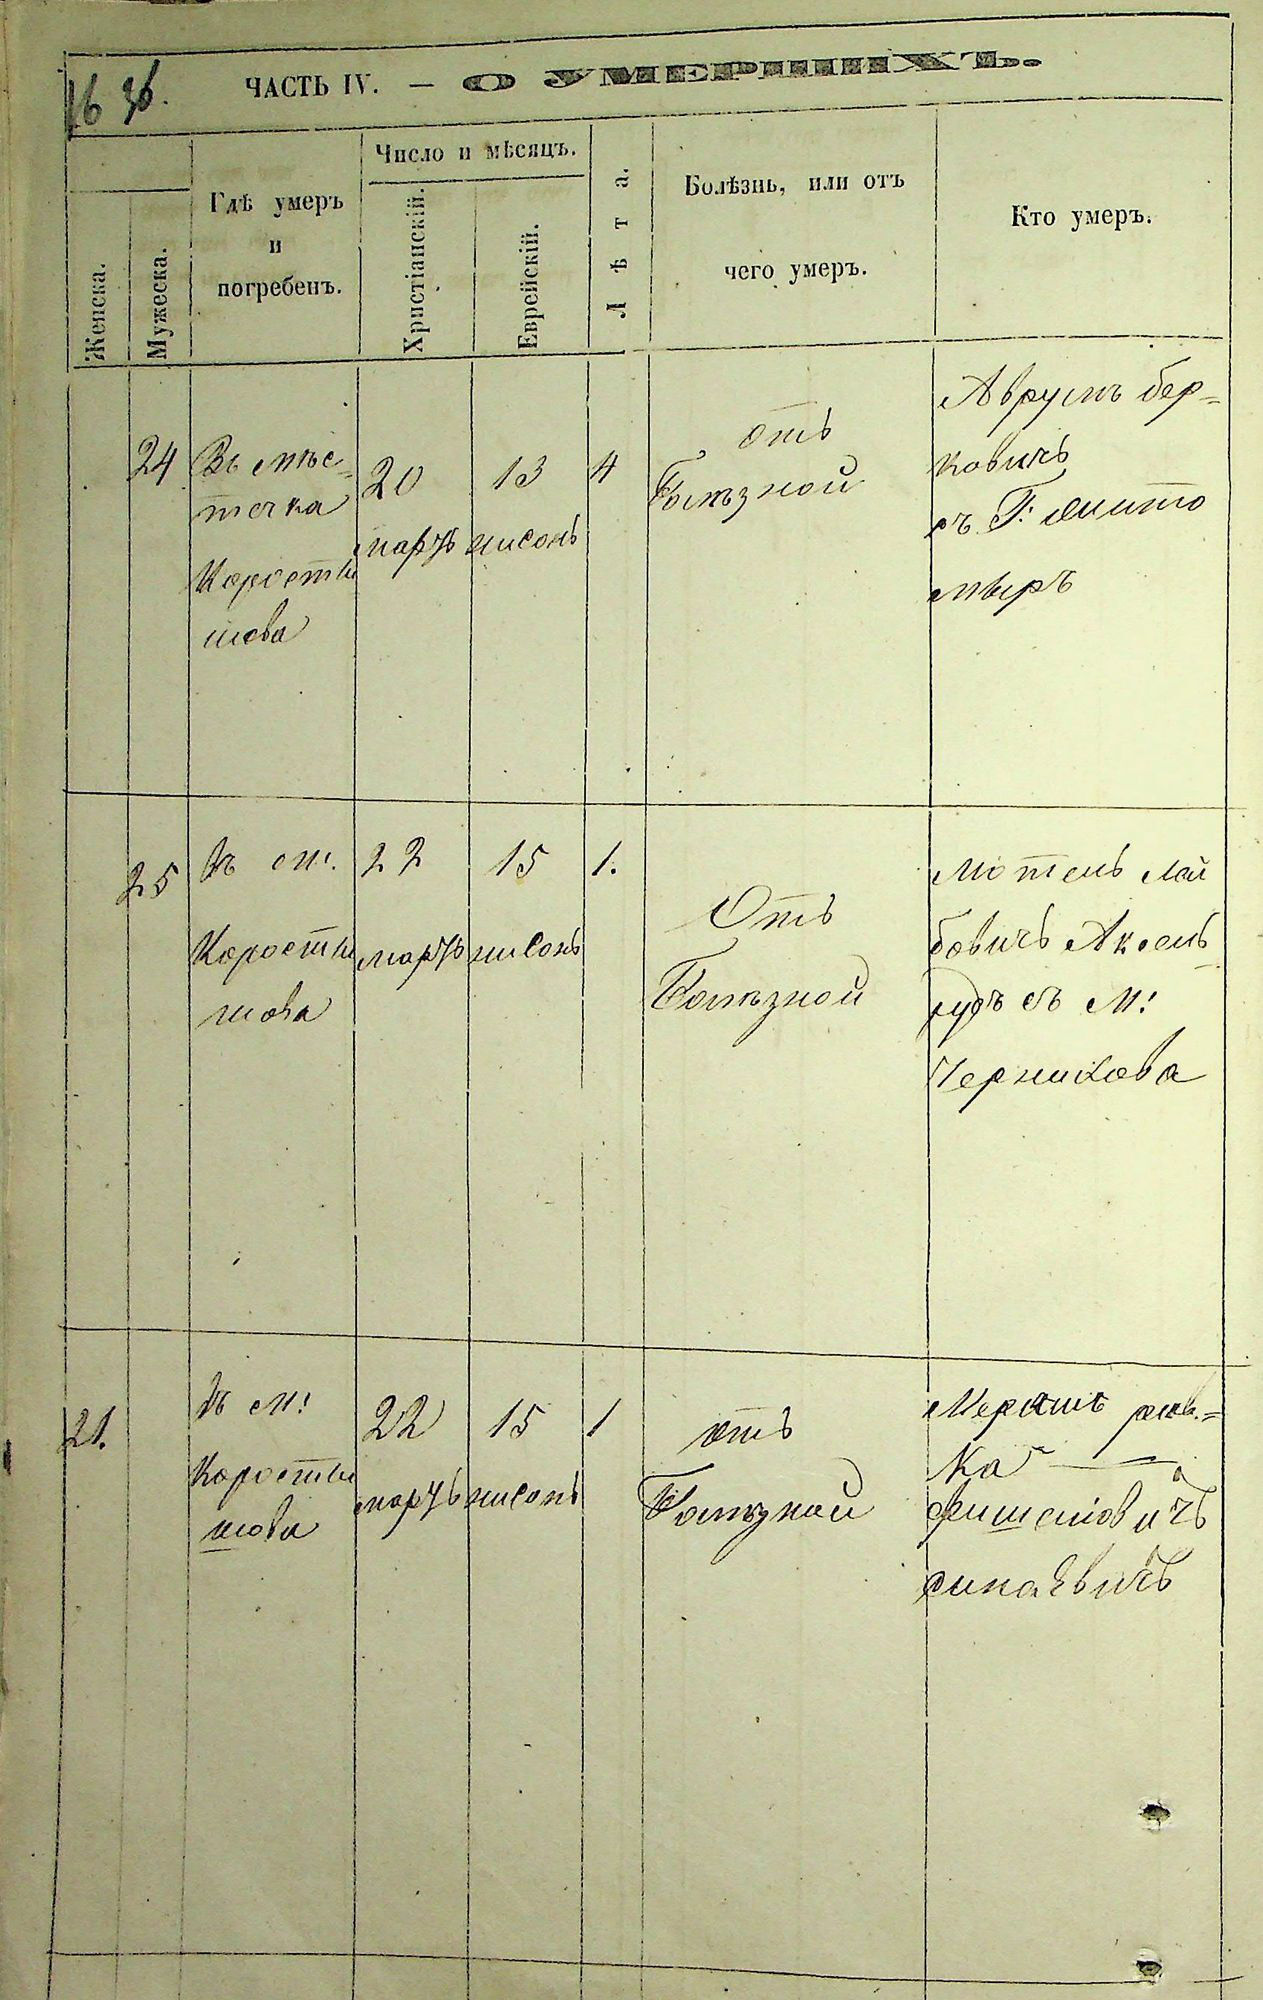 16 36.
ЧАСТЬ IV. — О УМЕРШИХЪ.
Женска.
Мужеска.
Гдѣ умеръ
и
погребенъ.
Число и мѣсяцъ.
Христіанскій.
Еврейскій.
Лѣта.
Болѣзнь, или отъ
чего умеръ.
Кто умеръ.
24
Въ мѣс=
течка
Коросты
шова
20
мартъ
13
нисонъ
4
отъ
Аврумъ бер=
ковичъ
съ Г: Жито
мыръ
25
Въ м:
Коросты
шова
22
мартъ
15
нисонъ
1.
Отъ
Мотель Лей
бовичъ
съ М:
Черникова
21.
Въ м:
Коросты
шова
22
мартъ
15
нисонъ
1
отъ
рив.=
Ка —
фишеліовичъ